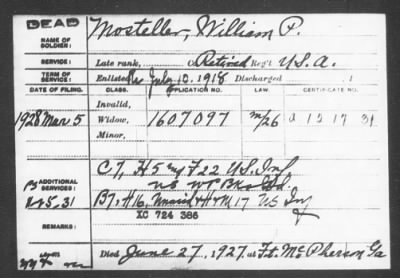 DEAD
NAME OF SOLDIER: Mosteller, William P.
SERVICE: Late rank, Retired Reg't U.S.A.
TERM OF SERVICE: Enlisted July 10, 1918 Discharged , 1
DATE OF FILING. CLASS. APPLICATION NO. LAW. CERTIFICATE NO.
Invalid,
1928 Mar 5 Widow, 1607097 a 12 17 31
Minor,
ADDITIONAL SERVICES: C 7, H 5 F 22 U.S. Inf
B 7, H 16, H + M 17 US Inf
XC 724 386
REMARKS:
Died June 27, 1927, at Ft. McPherson Ga